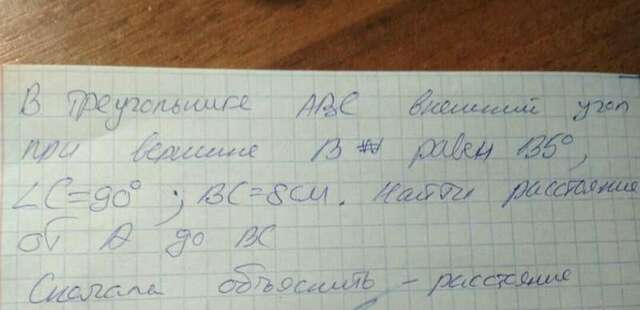 В треугольнике ABC внешний угол
при вершине B равен 135°,
∠C=90°; BC=8см. Найти расстояние
от A до BC
Сначала объяснить – расстояние